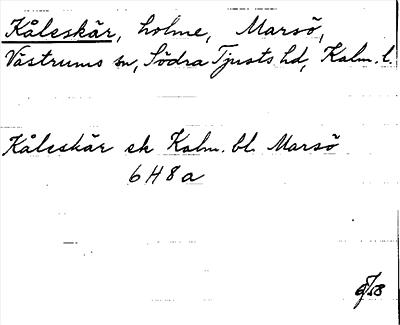 Kåleskär, holme, Marsö,
Västrums sn, Södra Tjusts hd, Kalm. l.
Kåleskär ek Kalm. bl. Marsö
6H8a